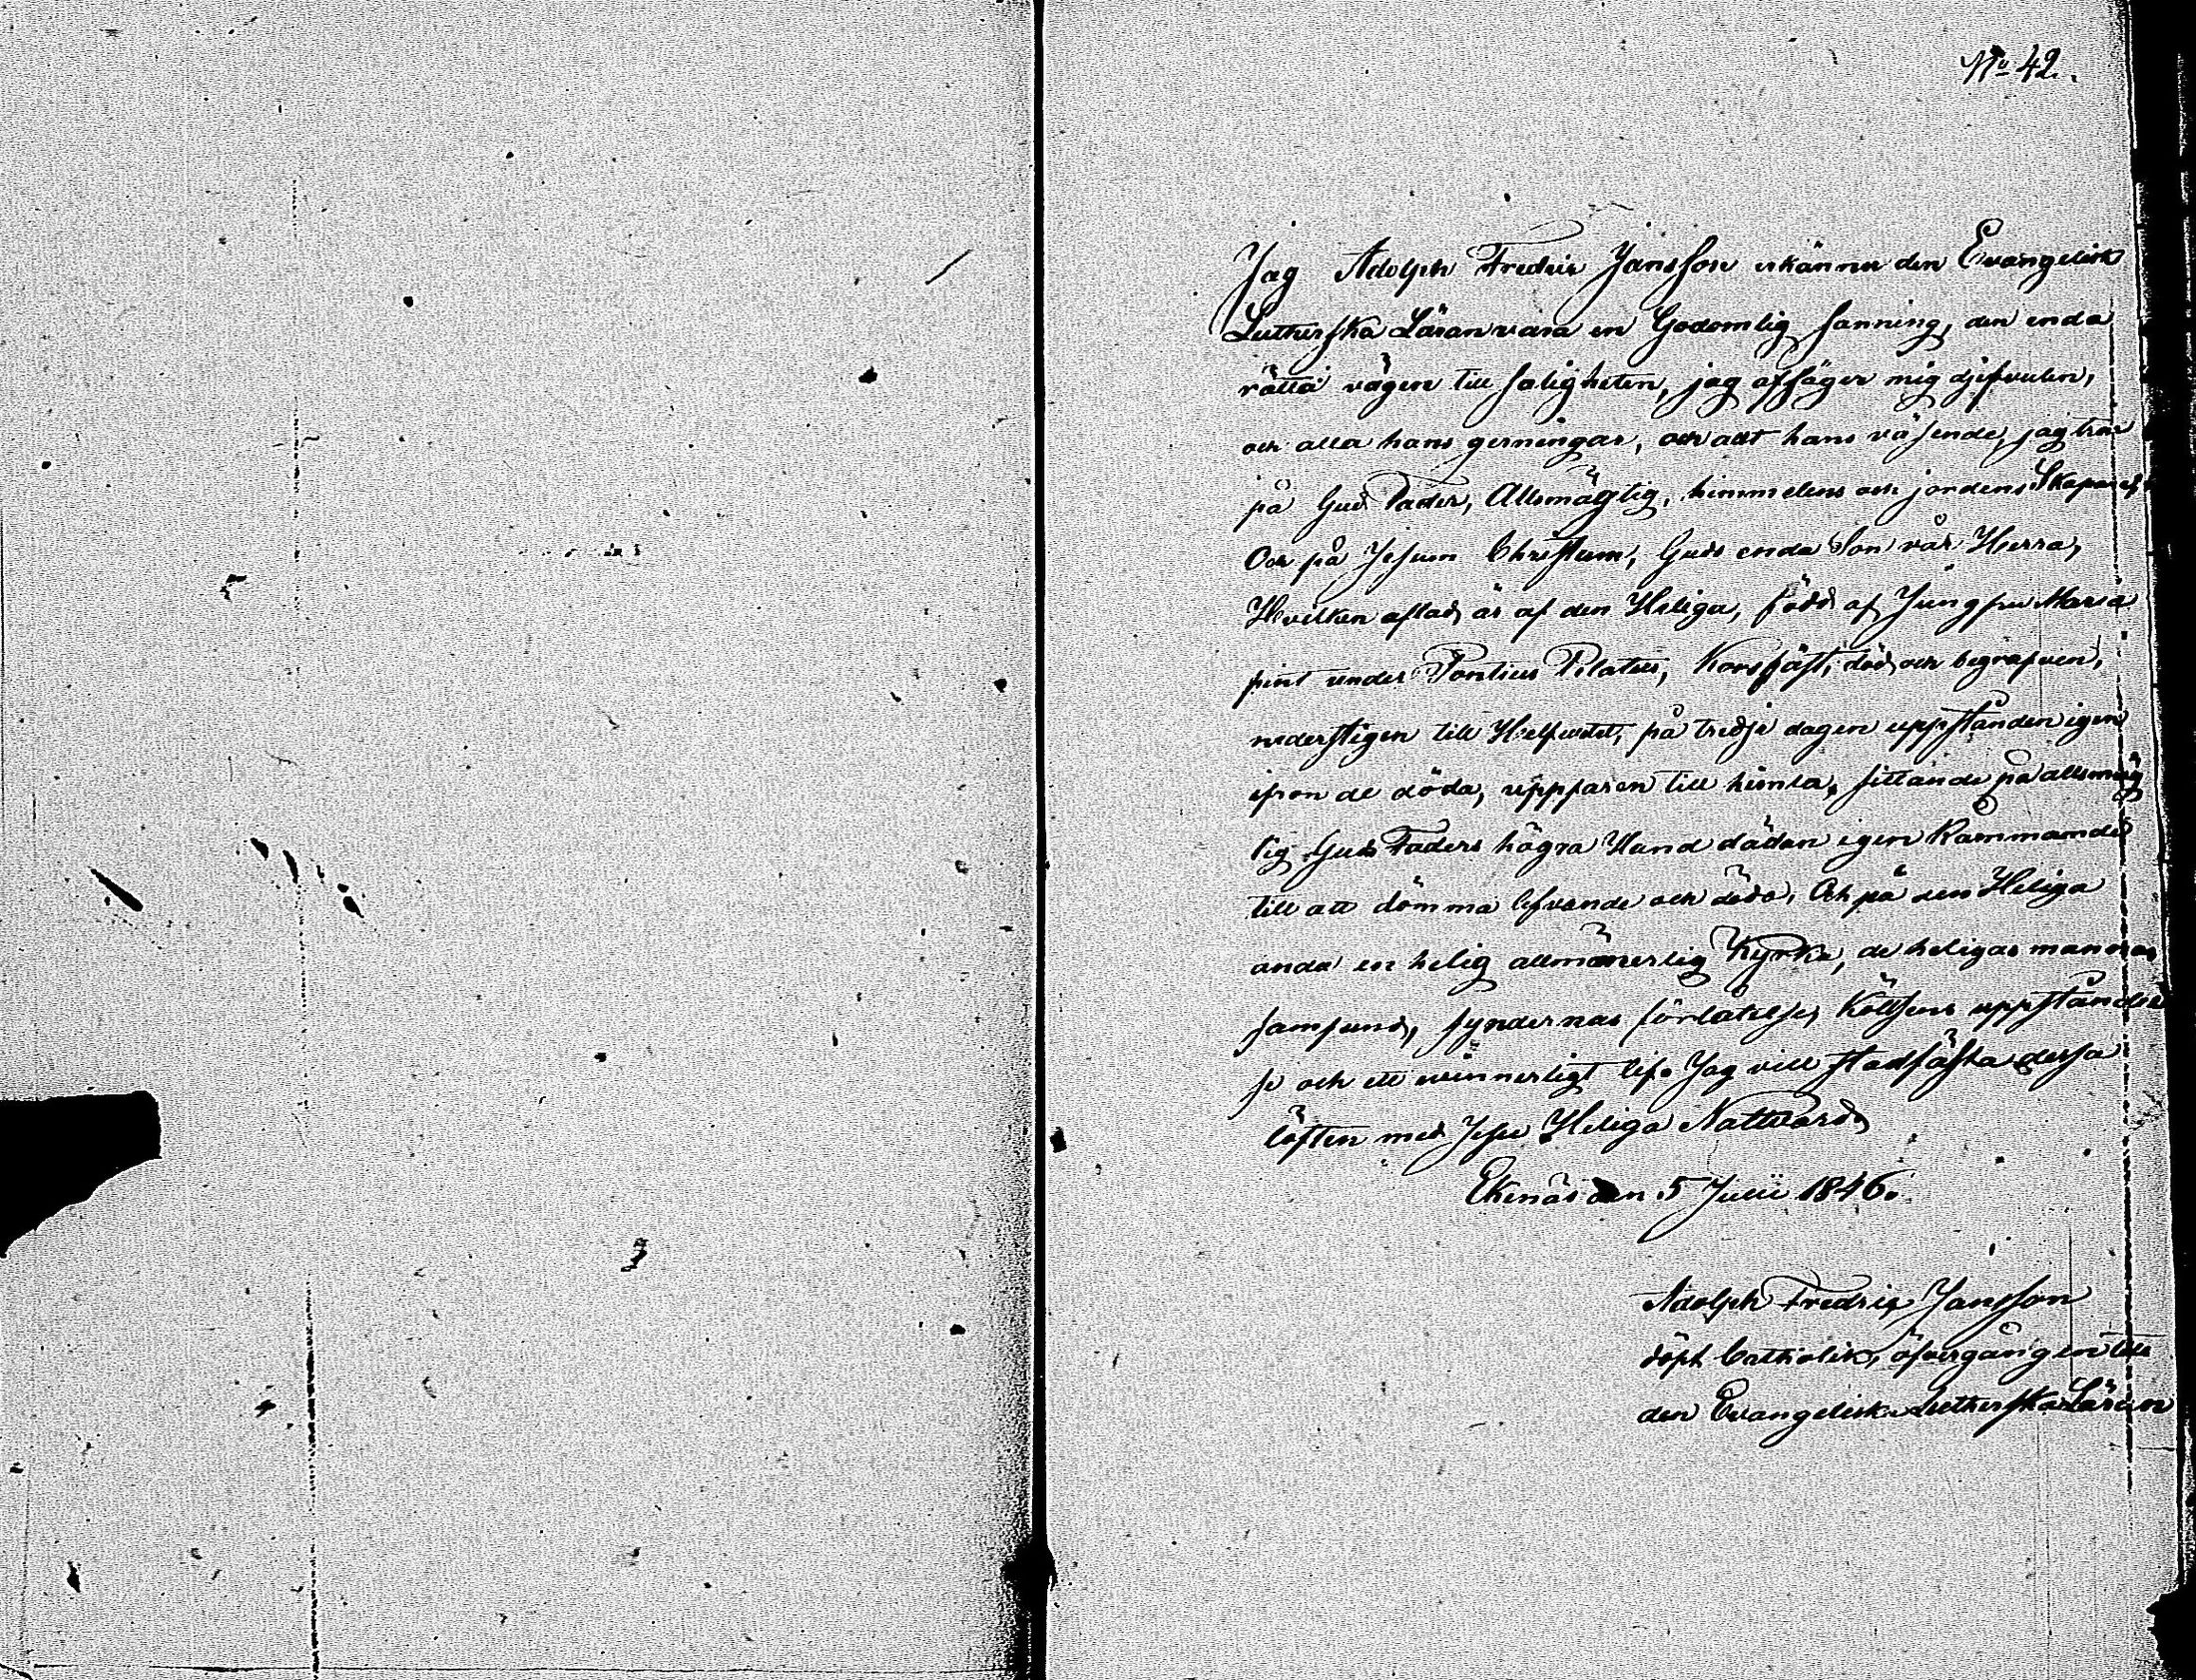 No 42.
Jag Adolph Fredric Jansson erkänner den Evangelisk
Lutherska Läran vara en Godomlig sanning, den enda
rätta vägen till saligheten, jag afsäger mig djefvulen,
och alla hans gerningar, och allt hans väsende, jag tror
på Gud Fader, Allsmägtig, himmelens och jordens Skapare,
Och på Jesum Christum, Guds enda Son vår Herra,
Hvilken aflad är af den Heliga, född af Jungfru Maria
pint under Pontius Pilatus, Korsfäst, död och begrafven,
nederstigen till Helfvetet, på tredje dagen uppstånden igen
ifron de döda, uppfaren till himla, sittande på allsmäg
tig Guds Faders högra Hand dädan igen Kommande
till att dömma lefvande och döda, Och på den Heliga
anda en helig allmänerlig Kyrka, de heligas mannas
samfund, syndernas förlåtelse, Köttsens uppståndel
se och ett evinnerligt lif. Jag vill stadfästa dessa
löften med Jesu Heliga Nattvard
Ekenäs den 5 Julii 1846.
Adolph Fredrig Jansson
döpt Catholik, öfvergången till
den Evangelisk Lutherska Läran